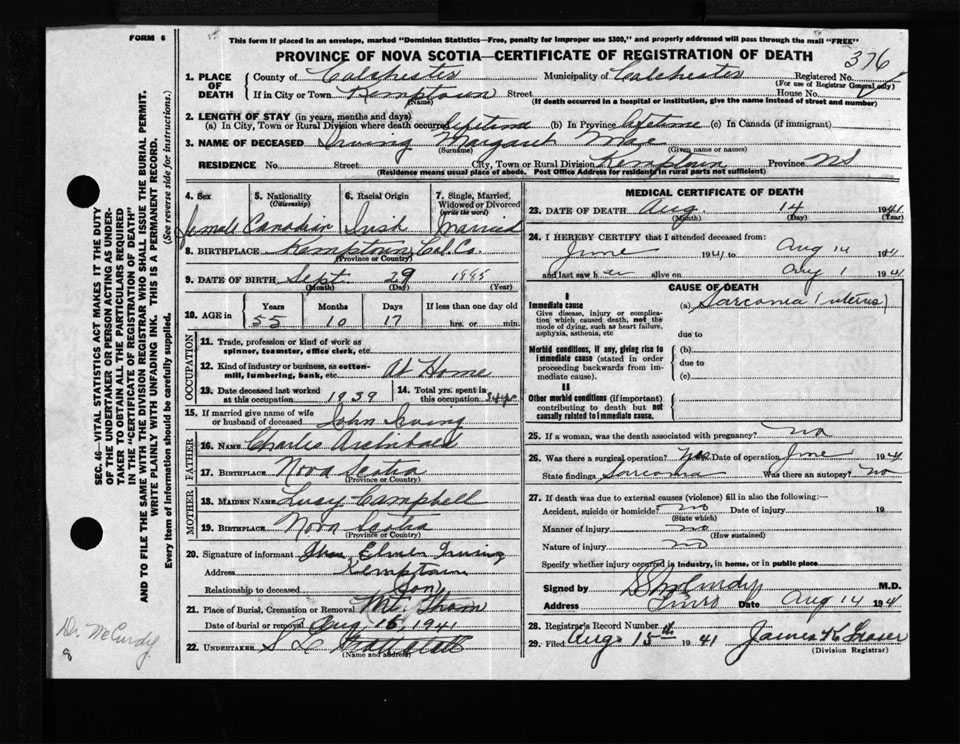 FORM 6
This form if placed in an envelope, marked "Dominion Statistics—Free, penalty for improper use $300," and properly addressed will pass through the mail "FREE"
PROVINCE OF NOVA SCOTIA—CERTIFICATE OF REGISTRATION OF DEATH
376
1. PLACE OF DEATH
County of Colchester Municipality of Colchester Registered No.
(For use of Registrar General only)
If in City or Town Kemptown Street House No.
(Name) (If death occurred in a hospital or institution, give the name instead of street and number)
2. LENGTH OF STAY (in years, months and days)
(a) In City, Town or Rural Division where death occurred Lifetime (b) In Province Lifetime (c) In Canada (if immigrant)
3. NAME OF DECEASED Irving Margaret Mae
(Surname) (Given name or names)
RESIDENCE No. Street City, Town or Rural Division Kemptown Province NS
(Residence means usual place of abode. Post Office Address for residents in rural parts not sufficient)
4. Sex 5. Nationality (Citizenship) 6. Racial Origin 7. Single, Married, Widowed or Divorced (write the word)
female Canadian Irish Married
8. BIRTHPLACE Kemptown Col. Co.
(Province or Country)
9. DATE OF BIRTH Sept. 29
(Month) (Day) (Year)
10. AGE in Years Months Days If less than one day old
55 10 17 hrs. or min.
OCCUPATION
11. Trade, profession or kind of work as spinner, teamster, office clerk, etc.
12. Kind of industry or business, as cotton-mill, lumbering, bank, etc. At Home
13. Date deceased last worked at this occupation 1939
14. Total yrs. spent in this occupation
15. If married give name of wife or husband of deceased John Irving
FATHER
16. NAME Charles Archibald
17. BIRTHPLACE Nova Scotia
(Province or Country)
MOTHER
18. MAIDEN NAME Lucy Campbell
19. BIRTHPLACE Nova Scotia
(Province or Country)
20. Signature of informant Elmer Irving
Address Kemptown
Relationship to deceased Son
21. Place of Burial, Cremation or Removal Mt. Thom
Date of burial or removal Aug. 16, 1941
22. UNDERTAKER
(Name and address)
MEDICAL CERTIFICATE OF DEATH
23. DATE OF DEATH Aug. 14 1941
(Month) (Day) (Year)
24. I HEREBY CERTIFY that I attended deceased from:
June 1941 to Aug 14 1941
and last saw her alive on Aug 1 1941
CAUSE OF DEATH
I
Immediate cause
Give disease, injury or complication which caused death, not the mode of dying, such as heart failure, asphyxia, asthenia, etc
(a) Sarcoma (uterus)
due to
Morbid conditions, if any, giving rise to immediate cause (stated in order proceeding backwards from immediate cause).
(b)
due to
(c)
II
Other morbid conditions (if important) contributing to death but not causally related to immediate cause.
25. If a woman, was the death associated with pregnancy? no
26. Was there a surgical operation? Yes Date of operation June 1941
State findings Sarcoma Was there an autopsy? No
27. If death was due to external causes (violence) fill in also the following:—
Accident, suicide or homicide? no Date of injury 19
(State which)
Manner of injury no
(How sustained)
Nature of injury no
Specify whether injury occurred in industry, in home, or in public place
Signed by McCurdy M.D.
Address Truro Date Aug 14 1941
28. Registrar's Record Number
29. Filed Aug 15th 1941 James Fraser
(Division Registrar)
SEC. 46—VITAL STATISTICS ACT MAKES IT THE DUTY
OF THE UNDERTAKER OR PERSON ACTING AS UNDER-
TAKER TO OBTAIN ALL THE PARTICULARS REQUIRED
IN THE "CERTIFICATE OF REGISTRATION OF DEATH"
AND TO FILE THE SAME WITH THE DIVISION REGISTRAR WHO SHALL ISSUE THE BURIAL PERMIT.
WRITE PLAINLY WITH UNFADING INK. THIS IS A PERMANENT RECORD.
Every item of information should be carefully supplied. (See reverse side for instructions.)
Dr. McCurdy
8